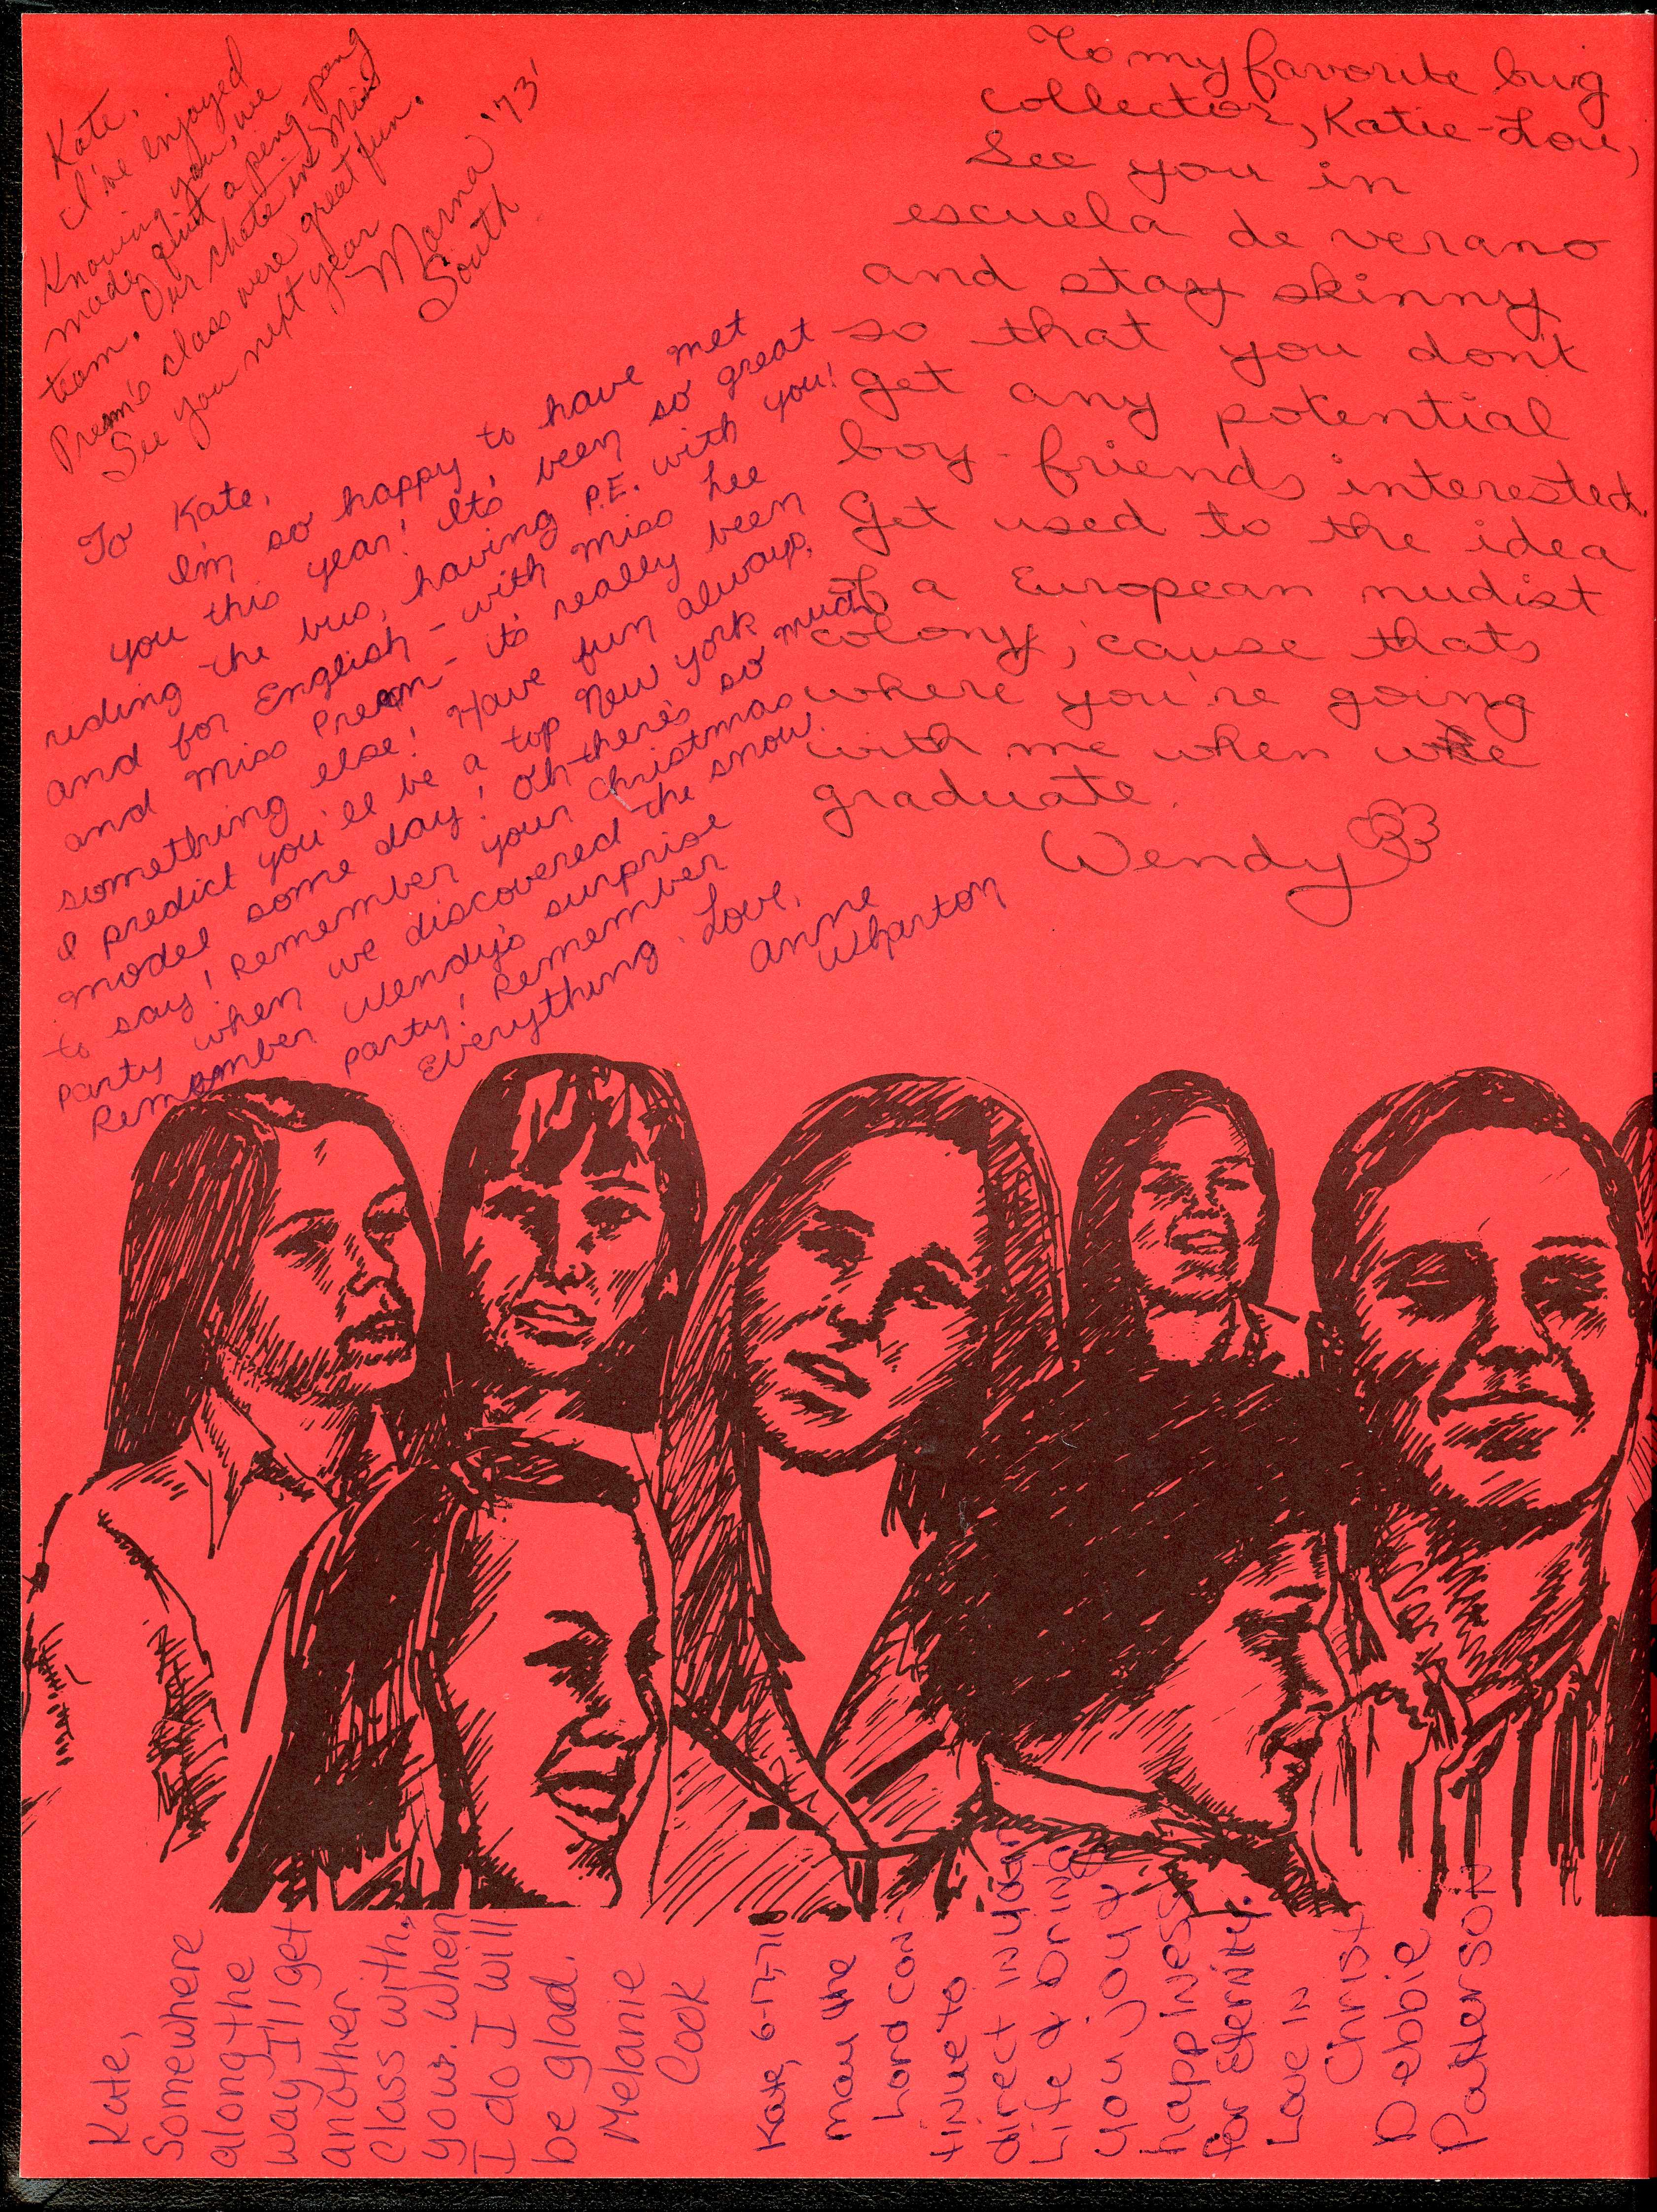 Kate,
I've enjoyed
Knowing you, we
made quit a ping-pong
team. Our chats in Miss
Premm's class were great fun.
See you next year
Morna '73'
South
To Kate,
I'm so happy to have met
you this year! Its' been so great
riding the bus, having P.E. with you!
and for English - with Miss Lee
and Miss Premm - its' really been
something else! Have fun always,
I predict you'll be a top New York
model some day! Oh-there's so much
to say! Remember your Christmas
party when we discovered the snow.
Remember Wendy's surprise
party! Remember
Everything. Love,
Anne
Wharton
To my favorite bug
collector, Katie-Lou,
See you in
escuela de verano
and stay skinny
so that you don't
get any potential
boy-friends interested.
Get used to the idea
of a European nudist
colony, 'cause thats
where you're going
with me when we
graduate.
Wendy
Kate,
Somewhere
along the
way I'll get
another
class with
you. When
I do I will
be glad.
Melanie
Cook
Kate, 6-17-71
may the
Lord con-
tinue to
direct in your
Life & bring
you joy &
happiness
for Eternity.
Love in
Christ
Debbie
Patterson